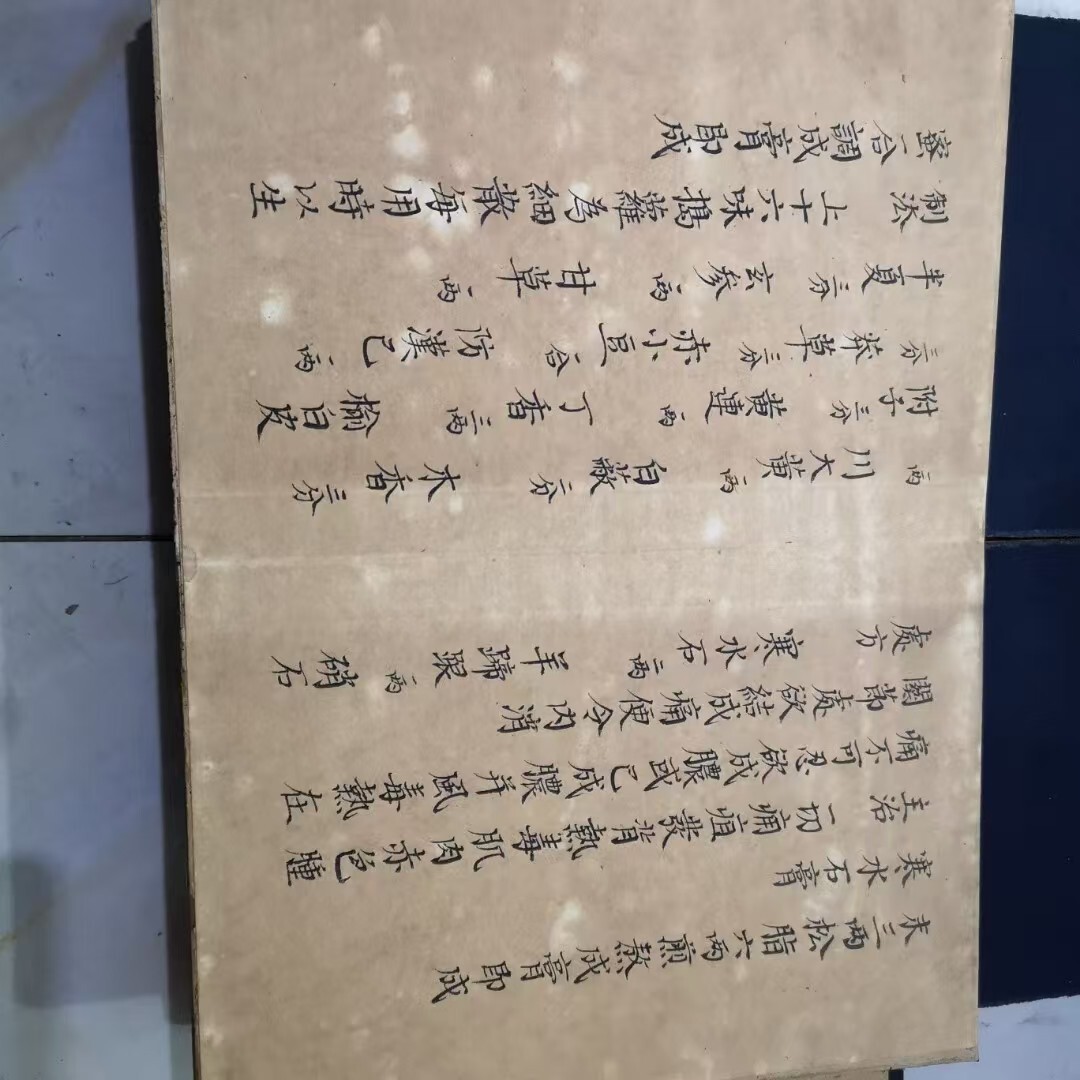 末三兩松脂六兩煎熬成膏即成
寒水石膏
主治 一切痈疽發背熱毒肌肉赤色腫
痛不可忍欲成膿或已成膿并風毒熱在
關節處欲結成痈便令內消
處方 寒水石二兩 羊蹄跟一兩 硝石
一兩 川大黃一兩 白蔹三分 木香三分
附子三分 黃連一兩 丁香三兩 榆白皮
三分 莽草三分 赤小豆一合 防漢己一兩
半夏三分 玄參一兩 甘草一兩
制法 上十六味搗蘿為細散每用時以生
蜜一合調成膏即成